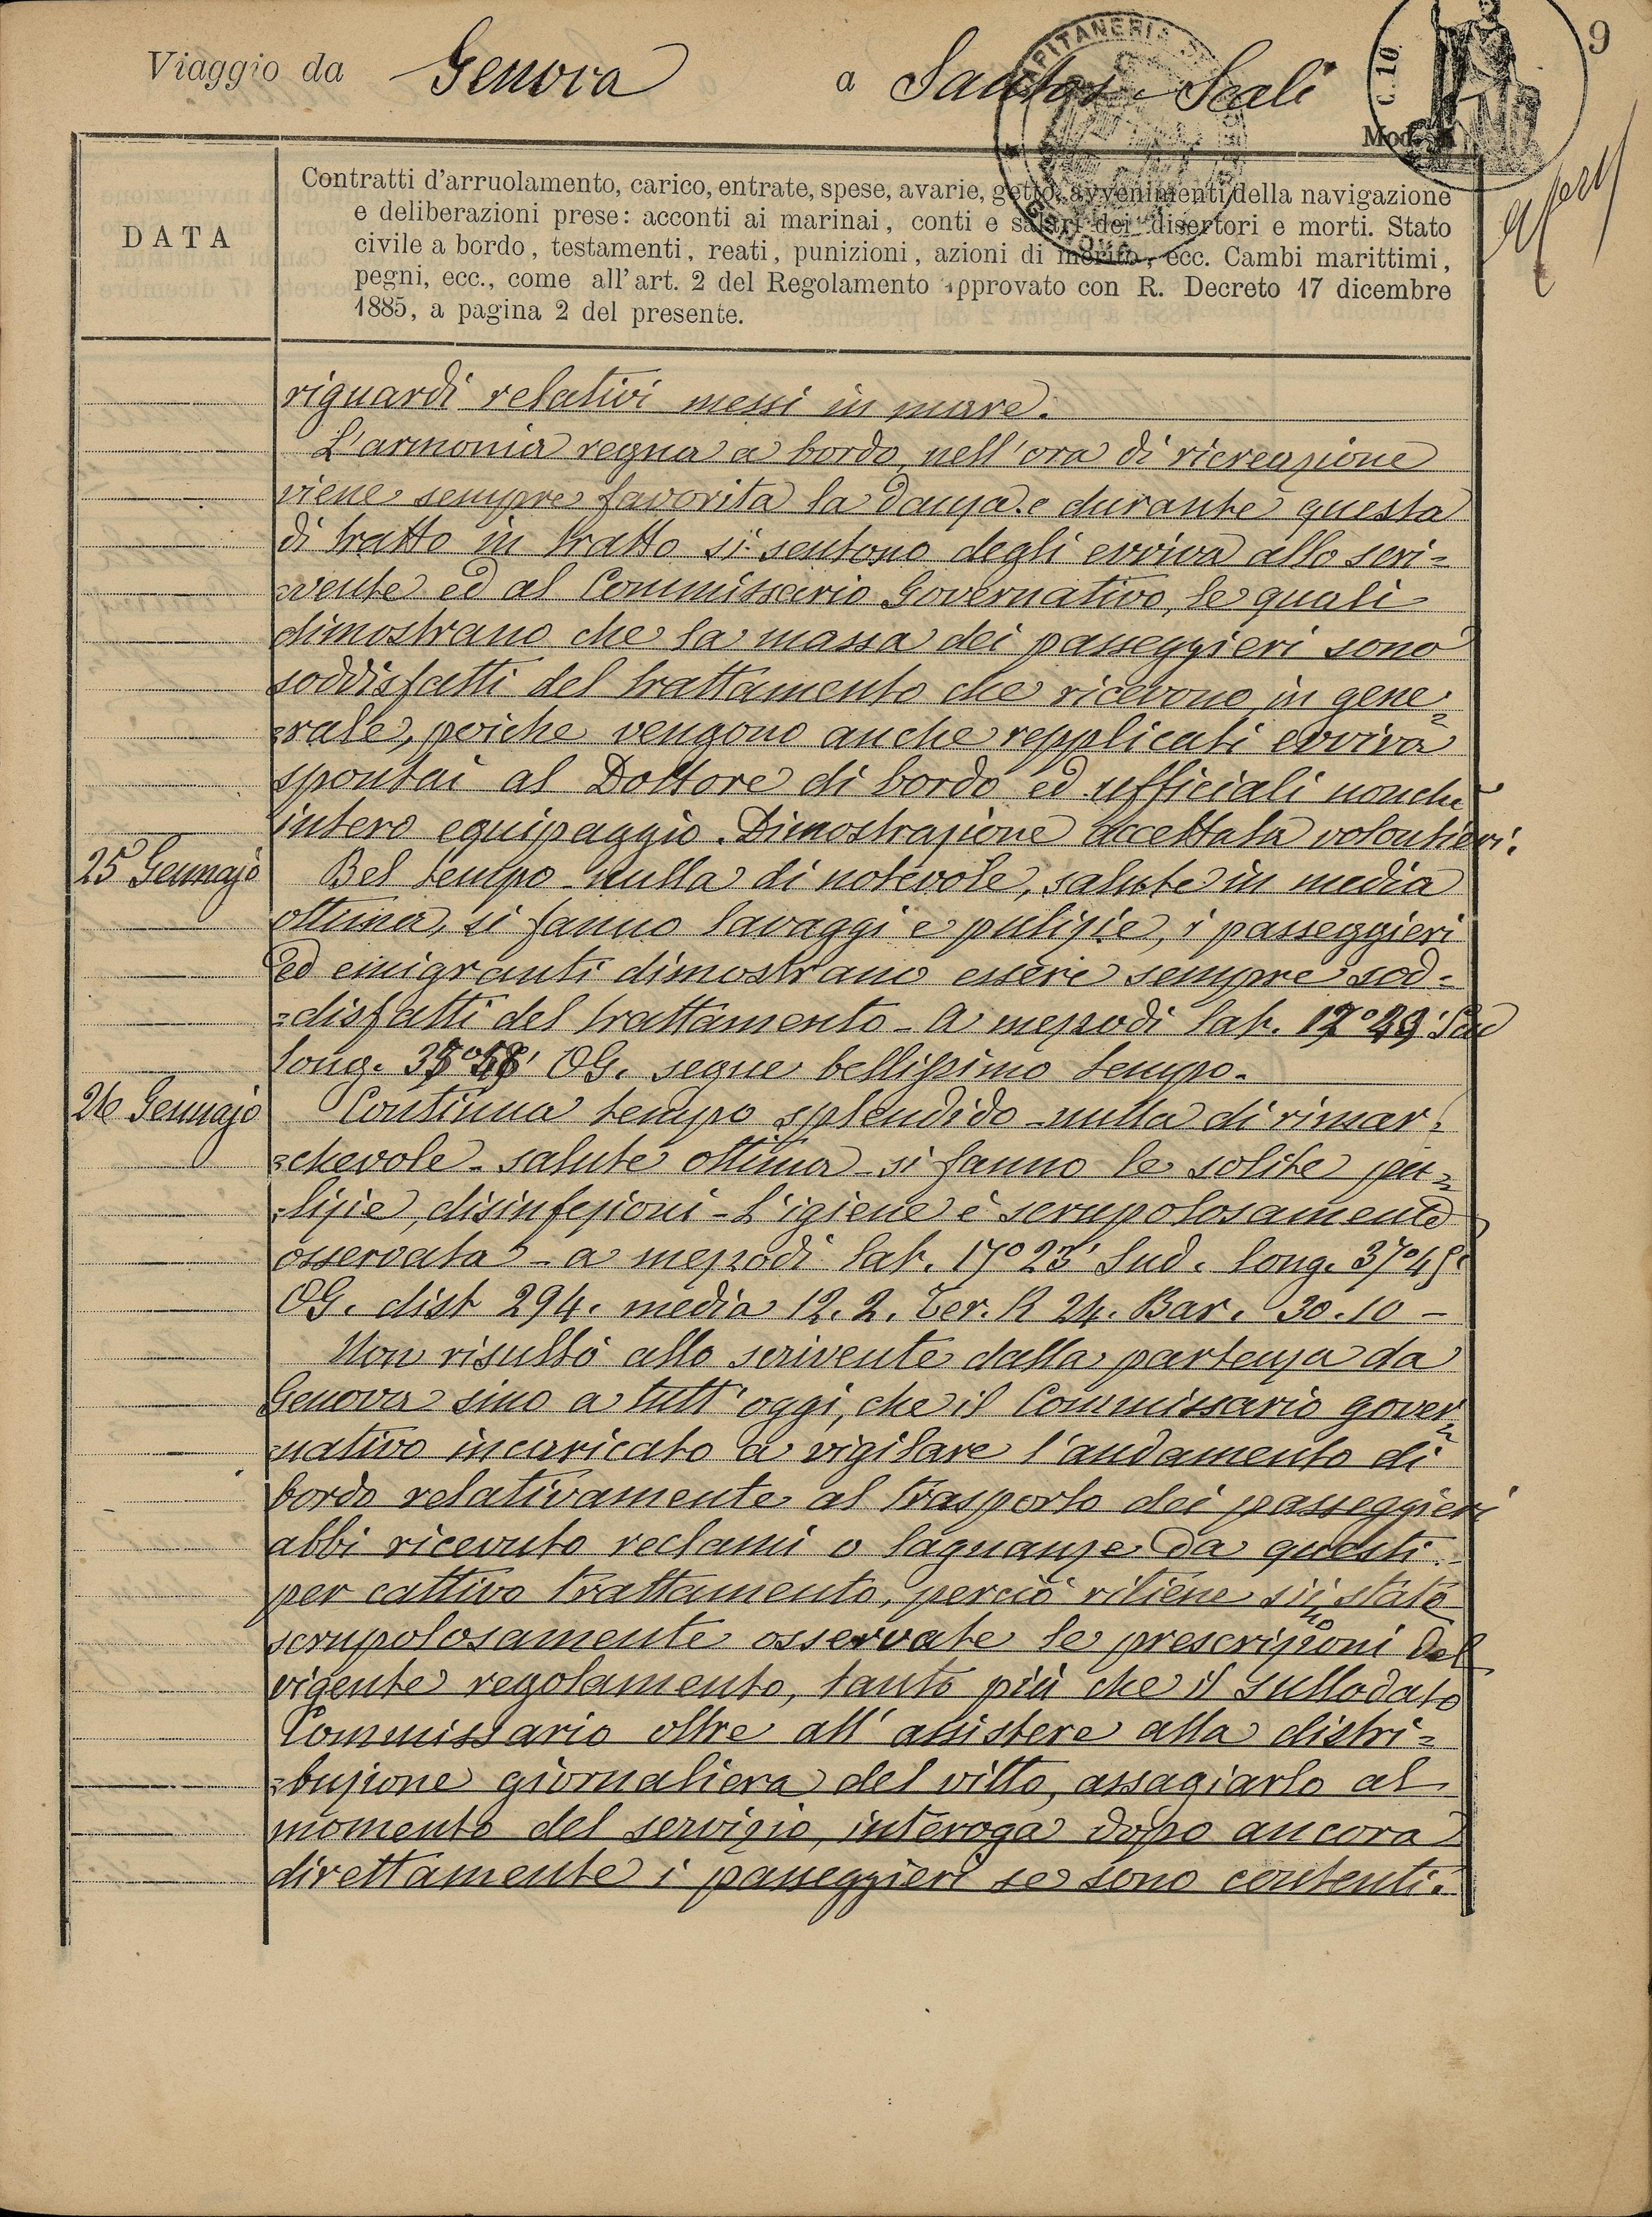 9
C. 10.
Viaggio da Genova a Santos - Scali
CAPITANERIA
GENOVA
Mod.
DATA
Contratti d'arruolamento, carico, entrate, spese, avarie, getto, avvenimenti della navigazione
e deliberazioni prese: acconti ai marinai, conti e salari dei disertori e morti. Stato
civile a bordo, testamenti, reati, punizioni, azioni di merito, ecc. Cambi marittimi,
pegni, ecc., come all'art. 2 del Regolamento approvato con R. Decreto 17 dicembre
1885, a pagina 2 del presente.
riguardi relativi messi in mare.
L'armonia regna a bordo, nell'ora di ricreazione
viene sempre favorita la danza e durante questa
di tratto in tratto si sentono degli evviva allo scri=
=vente ed al Commissario Governativo, le quali
dimostrano che la massa dei passeggieri sono
soddisfatti del trattamento che ricevono in gene=
=rale, poiche vengono anche repplicati evviva
spontai al Dottore di bordo ed ufficiali nonchè
intero equipaggio. Dimostrazione accettata volontieri.
25 Gennajo Bel tempo - nulla di notevole, salute in media
ottima, si fanno lavaggi e pulizie, i passeggieri
ed emigranti dimostrano essere sempre sod=
=disfatti del trattamento - A mezzodi lat. 12° 49' Sud
long. OG. segue bellissimo tempo.
26 Gennajo Continua tempo splendido - nulla di rimar=
=chevole - salute ottima - si fanno le solite pu=
=lizie, disinfezioni - L'igiene è scrupolosamente
osservata - a mezzodi lat. 17° 23' Sud. long. 37° 45'
OG. dist 294. media 12.2. Ter. R 24. Bar. 30.10 -
Non risultò allo scrivente dalla partenza da
Genova sino a tutt'oggi, che il Commissario gover=
=nativo incaricato a vigilare l'andamento di
bordo relativamente al trasporto dei passeggieri
abbi ricevuto reclami o lagnanze da questi
per cattivo trattamento, perciò ritiene siino state
scrupolosamente osservate le prescrizioni del
vigente regolamento, tanto più che il sullodato
Commissario oltre all'assistere alla distri=
=buzione giornaliera del vitto, assagiarlo al
momento del servizio, interoga dopo ancora
direttamente i passeggieri se sono contenti.